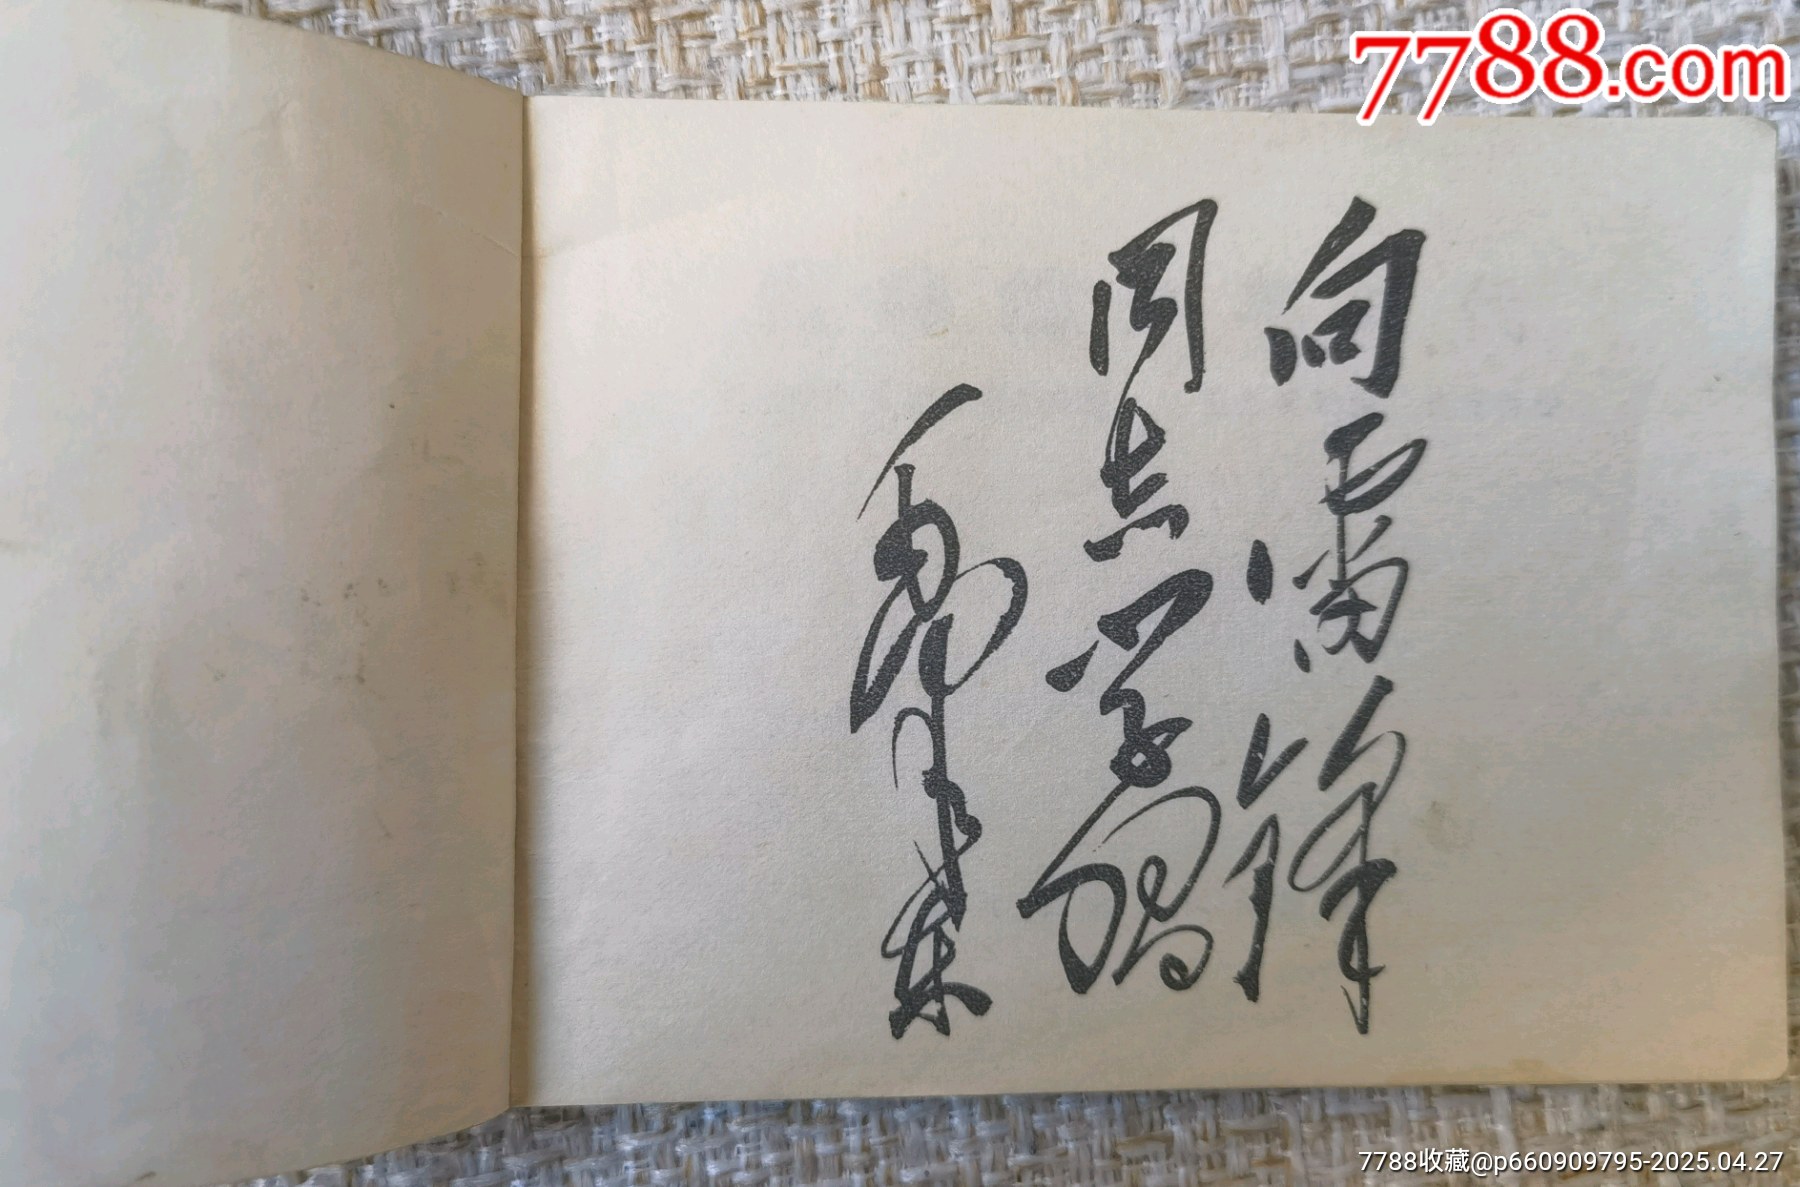 7788.com
向雷锋
同志学习
毛泽东
7788收藏@p660909795-2025.04.27